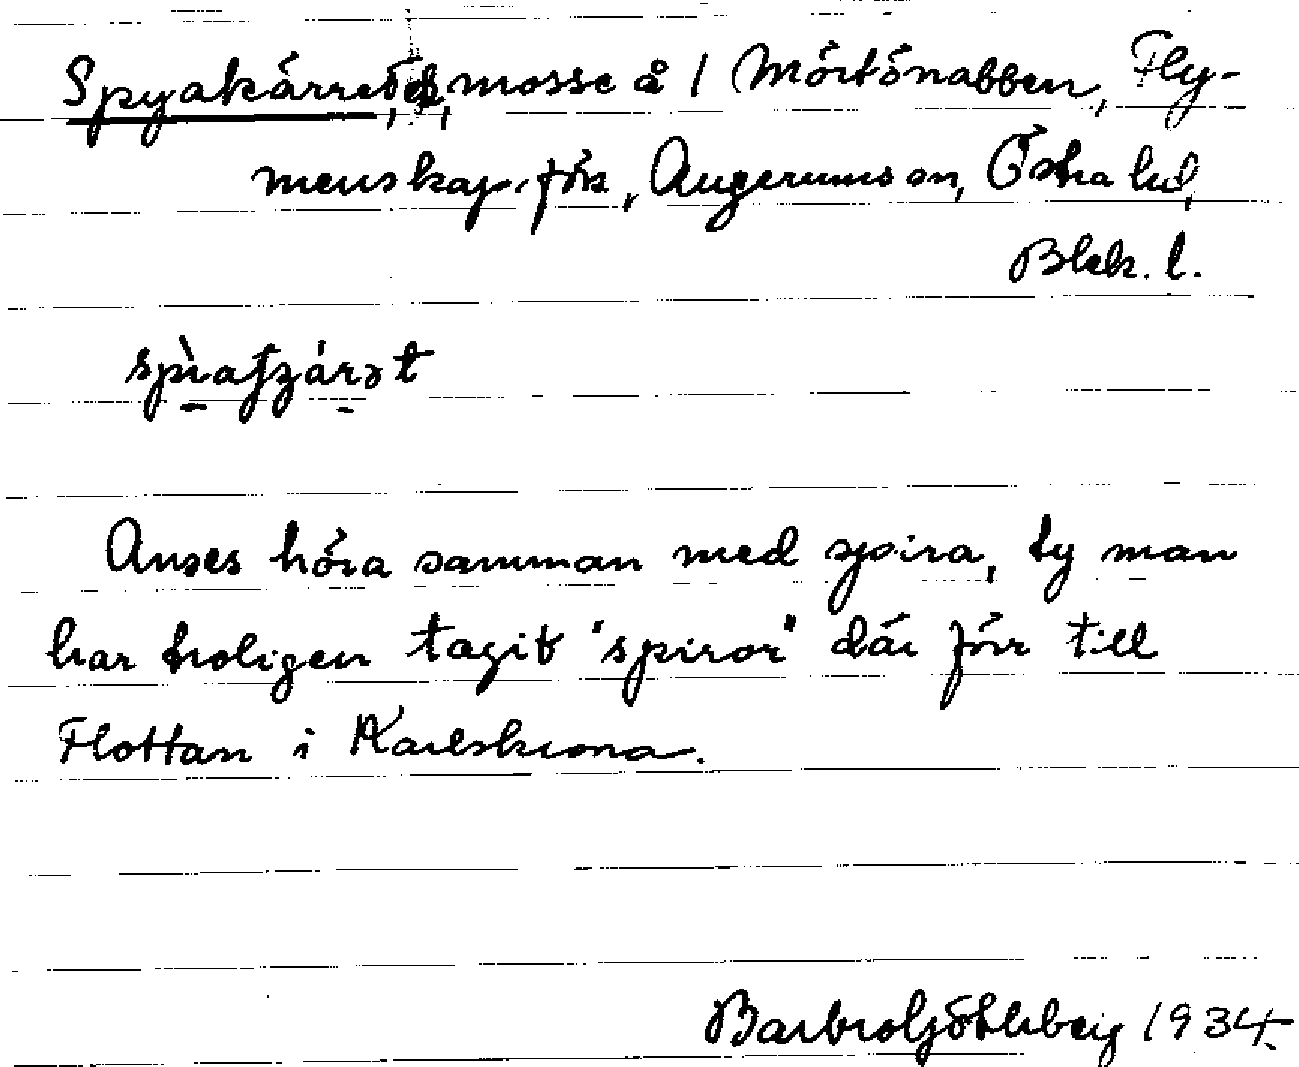 Spyakärret, mosse å 1 Mörtönabben, Fly-
menskap. för, Augerums sn, Östra hd,
Blek. l.
Anses höra samman med spira, ty man
har troligen tagit "spiror" där förr till
Flottan i Karlskrona.
Barbro Götherberg 1934.